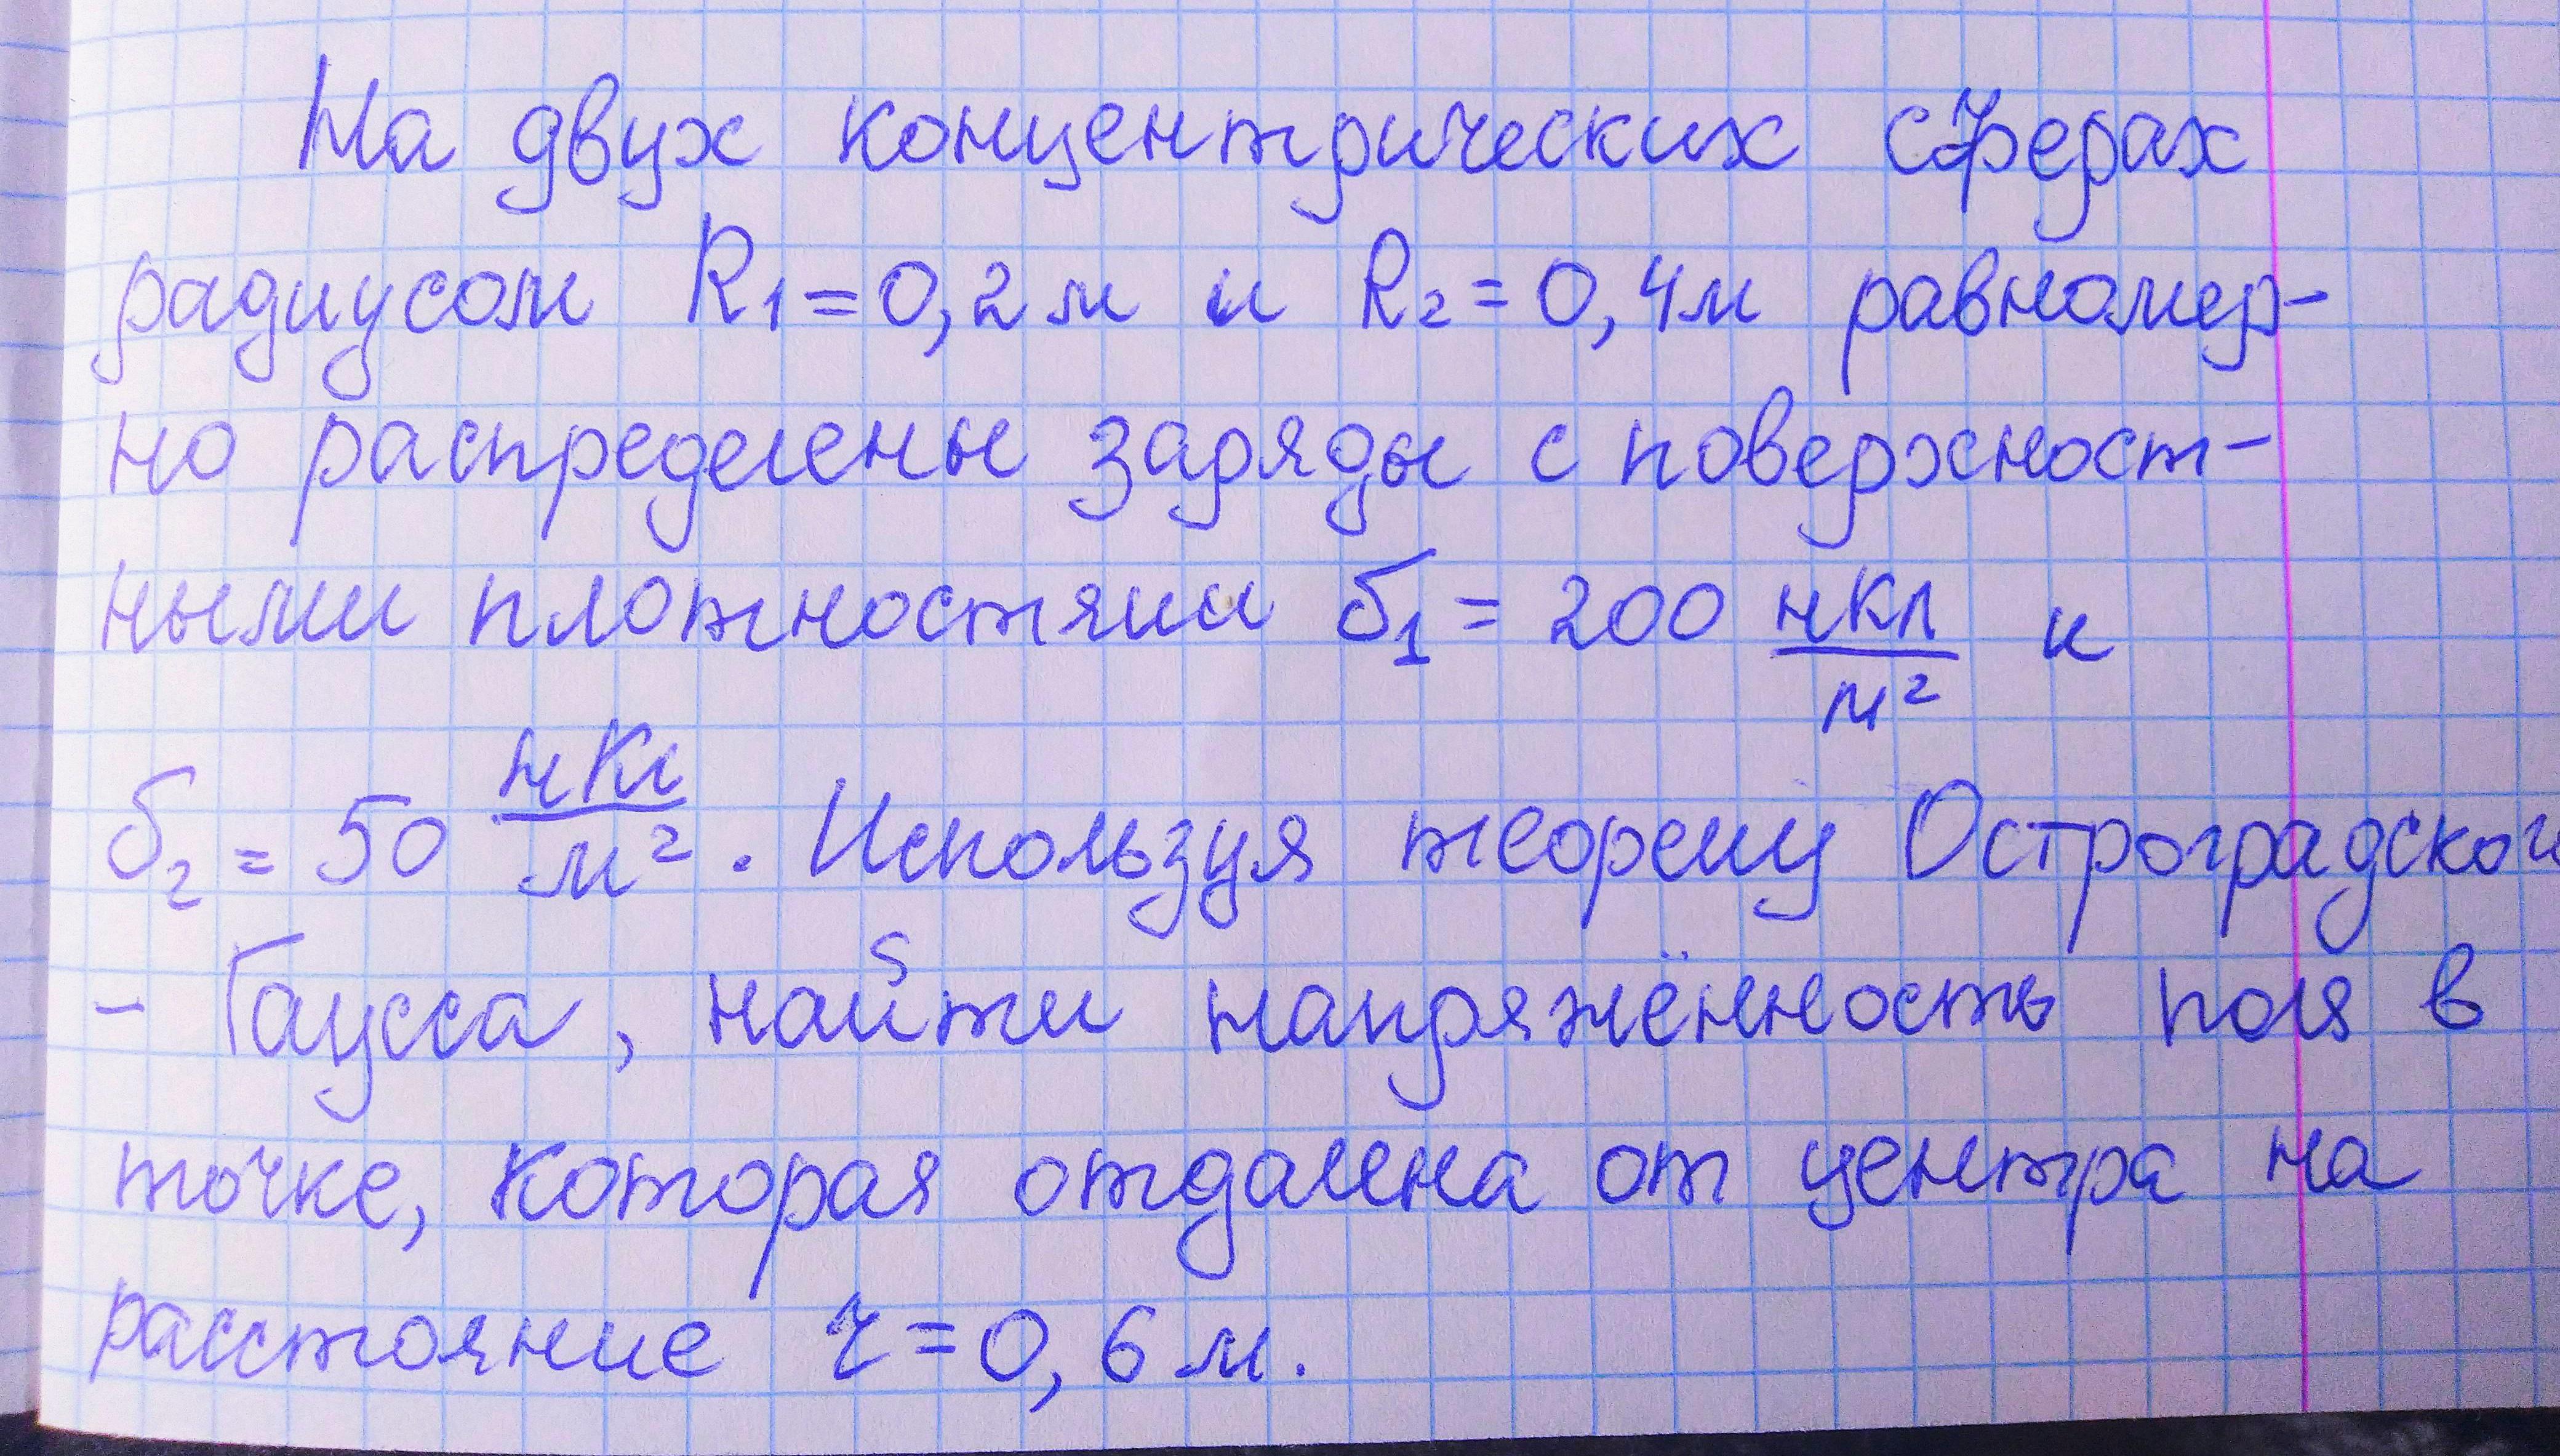 На двух концентрических сферах
радиусом R₁=0,2м и R₂=0,4м равномер-
но распределены заряды с поверхност-
ными плотностями б₁ = 200 нКл/м² и
б₂ = 50 нКл/м². Используя теорему Остроградского
- Гаусса, найти напряжённость поля в
точке, которая отдалена от центра на
расстояние r=0,6м.